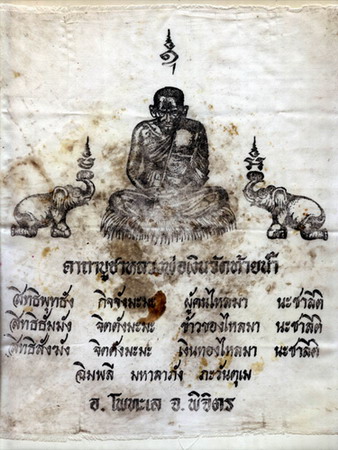 คาถาบูชาหลวงพ่อเงินวัดท้ายน้ำ
สิทธิพุทธัง กิจจังมะมะ ผู้คนไหลมา นะชาลิติ
สิทธิธัมมัง จิตตังมะมะ ข้าวของไหลมา นะชาลิติ
สิทธิสังฆัง จิตตังมะมะ เงินทองไหลมา นะชาลิติ
ฉิมพลี มหาลาภัง ภะวันตุเม
อ. โพทะเล จ. พิจิตร